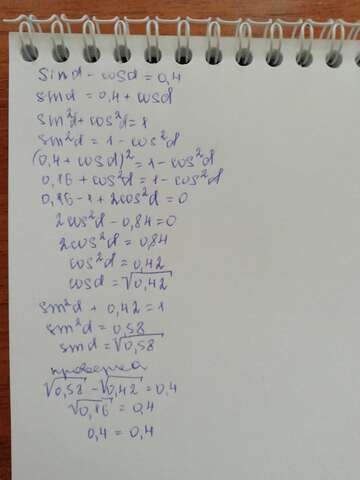 sind - cosd = 0,4
sind = 0,4 + cosd
sin²d + cos²d = 1
sin²d = 1 - cos²d
(0,4 + cosd)² = 1 - cos²d
0,16 + cos²d = 1 - cos²d
0,16 - 1 + 2cos²d = 0
2cos²d - 0,84 = 0
2cos²d = 0,84
cos²d = 0,42
cosd = √0,42
sin²d + 0,42 = 1
sin²d = 0,58
sind = √0,58
проверка
√0,58 - √0,42 = 0,4
√0,16 = 0,4
0,4 = 0,4